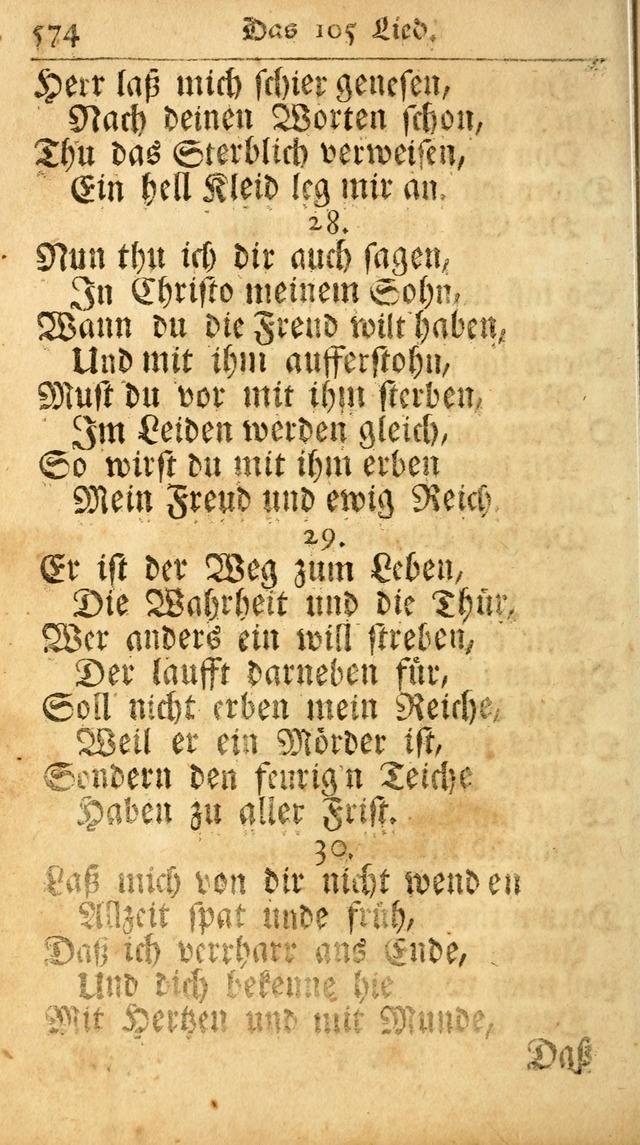 574 Das 105 Lied.
Herr laß mich schier genesen,
Nach deinen Worten schon,
Thu das Sterblich verweisen,
Ein hell Kleid leg mir an.
28.
Nun thu ich dir auch sagen,
In Christo meinem Sohn,
Wann du die Freud wilt haben,
Und mit ihm aufferstohn,
Must du vor mit ihm sterben,
Im Leiden werden gleich,
So wirst du mit ihm erben
Mein Freud und ewig Reich.
29.
Er ist der Weg zum Leben,
Die Wahrheit und die Thür,
Wer anders ein will streben,
Der laufft darneben für,
Soll nicht erben mein Reiche,
Weil er ein Mörder ist,
Sondern den feurig'n Teiche
Haben zu aller Frist.
30.
Laß mich von dir nicht wenden
Allzeit spat unde früh,
Daß ich verrharr ans Ende,
Und dich bekenne hie
Mit Hertzen und mit Munde,
Daß